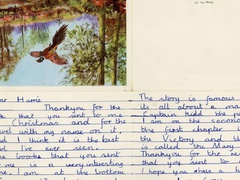 ar Hami
Thankyou for the
k that you sent to me
Christmas and for the
wel with my name on it,
d I think it is the best
I've ever seen.
books that you sent
me is a very interesting
e. I am at the bottom
The story is famous
its all about a ma
Captain Kidd the p
I am on the second
the first chapter i
the Victory and th
is called the Mary
Thankyou for the se
that you sent me
hope you have a h